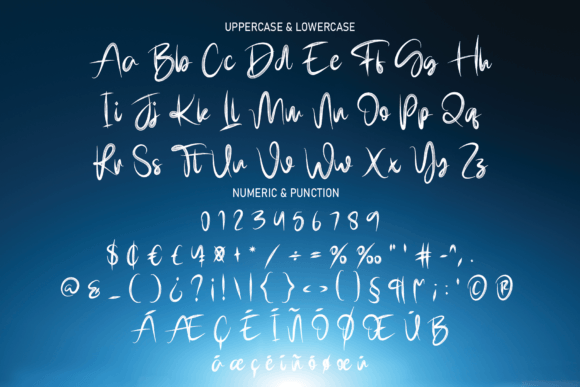 UPPERCASE & LOWERCASE
Aa Bb Cc Dd Ee Ff Gg Hh
Ii Jj Kk Ll Mm Nn Oo Pp Qq
Rr Ss Tt Uu Vv Ww Xx Yy Zz
NUMERIC & PUNCTION
0 1 2 3 4 5 6 7 8 9
$ ₵ € £ ¥ ¤ + * / ÷ = % ‰ " ' # - ^ , .
@ & _ ( ) ¿ ? ¡ ! \ | { } < > ( ) § ¶ ¡ ; : ' © ®
Á Æ Ç É Í Ñ Ó Ø Œ Ú B
á æ ç é í ñ ó ø œ ú